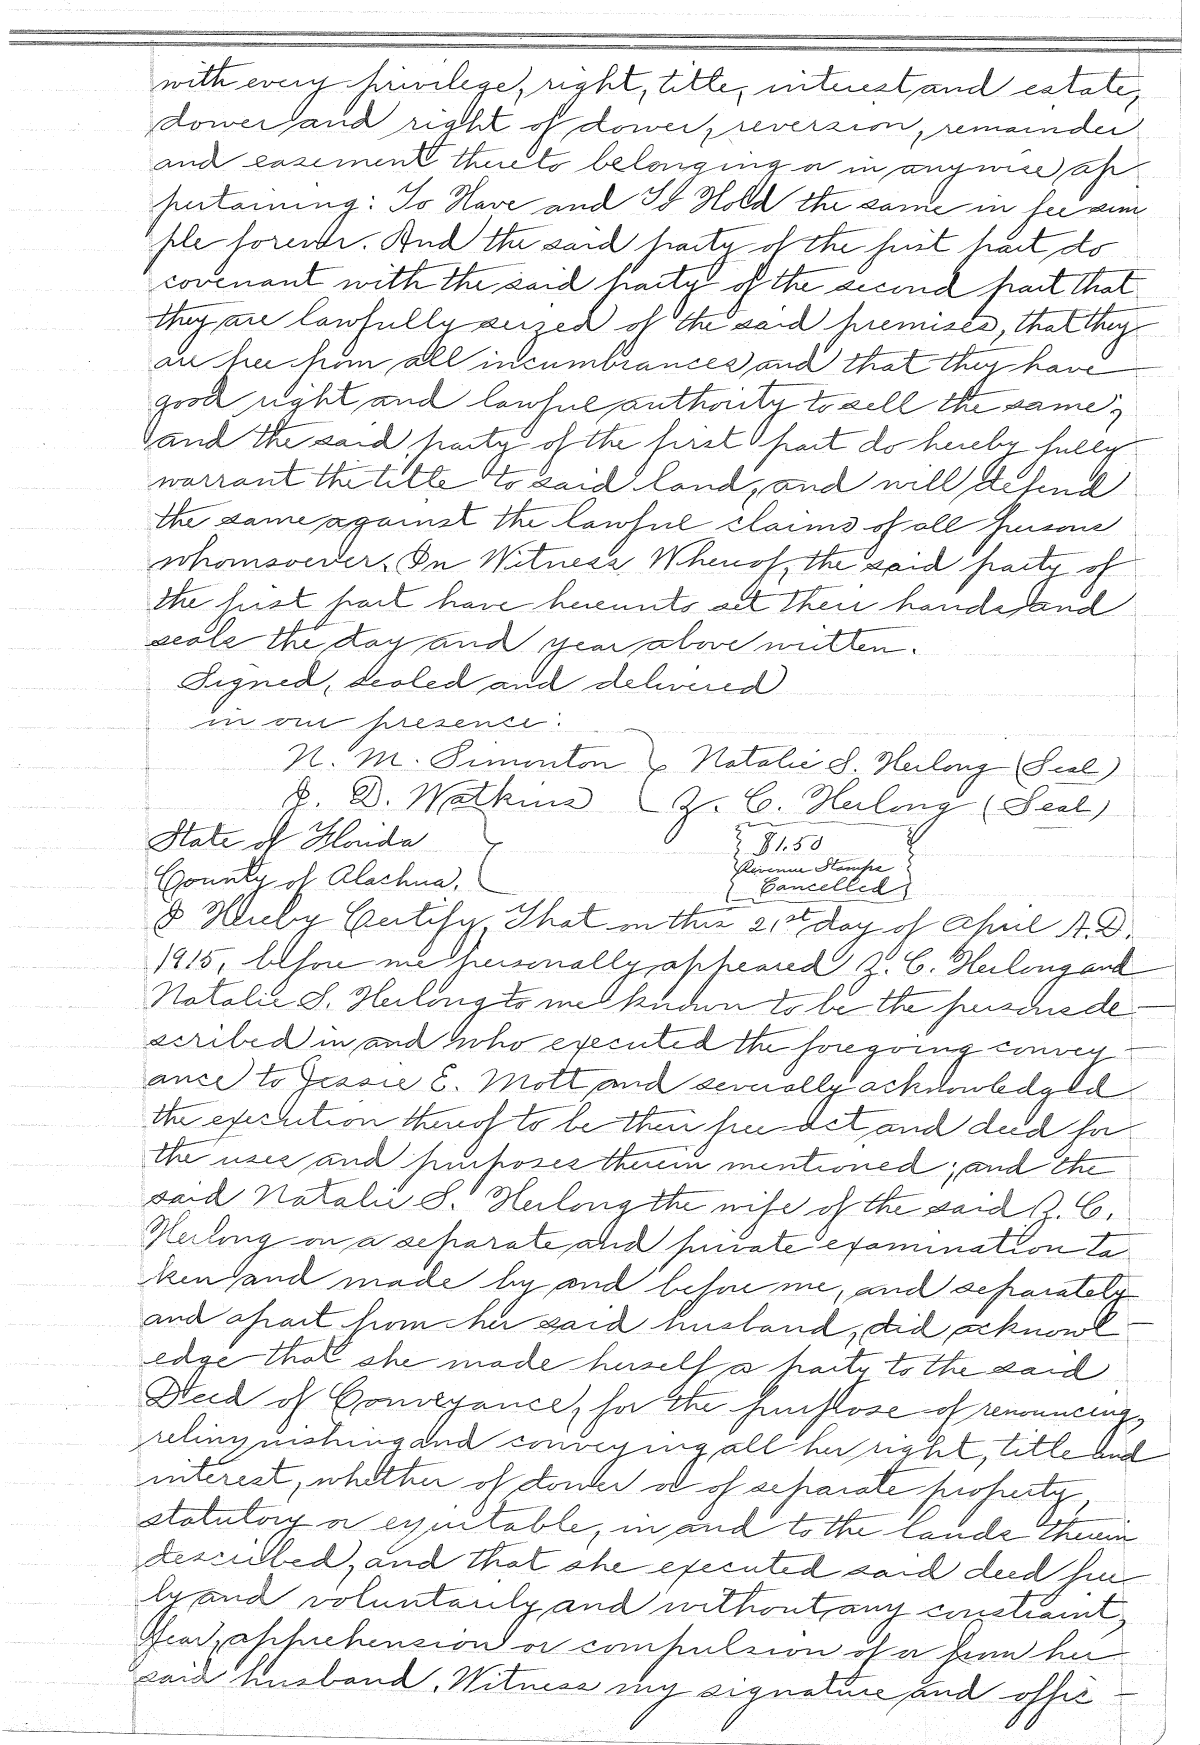 with every privilege, right, title, interest and estate,
dower and right of dower, reversion, remainder
and easement thereto belonging or in anywise ap
pertaining: To Have and To Hold the same in fee sim
ple forever. And the said party of the first part do
covenant with the said party of the second part that
they are lawfully seized of the said premises, that they
are free from all incumbrances and that they have
good right and lawful authority to sell the same;
and the said party of the first part do hereby fully
warrant the title to said land, and will defend
the same against the lawful claims of all persons
whomsoever. In Witness Whereof, the said party of
the first part have hereunto set their hands and
seals the day and year above written.
Signed, sealed and delivered
in our presence:
N. M. Simonton Natalie S. Herlong (Seal)
J. D. Watkins Z. C. Herlong (Seal)
State of Florida $1.50
Revenue Stamps
County of Alachua. Cancelled
I Hereby Certify, That on this 21st day of April A.D.
1915, before me personally appeared Z. C. Herlong and
Natalie S. Herlong to me known to be the persons de
scribed in and who executed the foregoing convey-
ance to Jessie E. Mott and severally acknowledged
the execution thereof to be their free act and deed for
the uses and purposes therein mentioned; and the
said Natalie S. Herlong the wife of the said Z. C.
Herlong on a separate and private examination ta
ken and made by and before me, and separately
and apart from her said husband, did acknowl-
edge that she made herself a party to the said
Deed of Conveyance, for the purpose of renouncing,
relinquishing and conveying all her right, title and
interest, whether of dower or of separate property,
statutory or equitable, in and to the lands therein
described, and that she executed said deed free
ly and voluntarily and without any constraint,
fear, apprehension or compulsion of or from her
said husband. Witness my signature and offic-